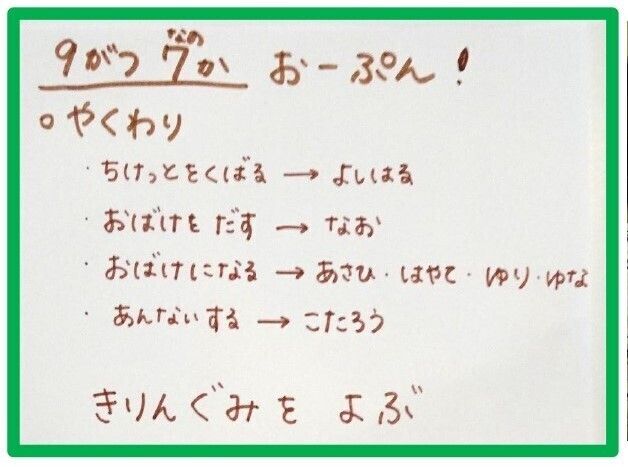 9がつ 7か おーぷん!
なの
○やくわり
・ちけっとをくばる → よしはる
・おばけを だす → なお
・おばけになる → あさひ・はやて・ゆり・ゆな
・あんないする → こたろう
きりんぐみを よぶ